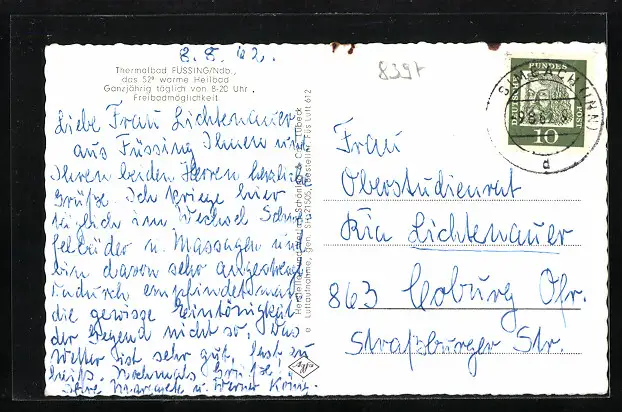 8. 8. 62.
Thermalbad FÜSSING/Ndb.,
das 52° warme Heilbad
Ganzjährig täglich von 8-20 Uhr,
Freibademöglichkeit
Liebe Frau Lichtenauer
aus Füssing Ihnen und
Ihren beiden Herren herzliche
Grüße. Ich kriege hier
täglich im Wechsel Schwe-
felbäder u. Massagen und
bin davon sehr angestrengt
dadurch empfindet man
die gewisse Eintönigkeit
der Gegend nicht so. Das
Wetter ist sehr gut, fast zu
heiß. Nochmals Grüße!
Ihre Margarete u. Werner König.
Schöning & Co., Lübeck
Luftaufnahme, gen.
Bestellnr. Füs Luft 612
8397
DEUTSCHE BUNDESPOST
10
Frau
Oberstudienrat
Ria Lichtenauer
863 Coburg Ofr.
Straßburger Str.